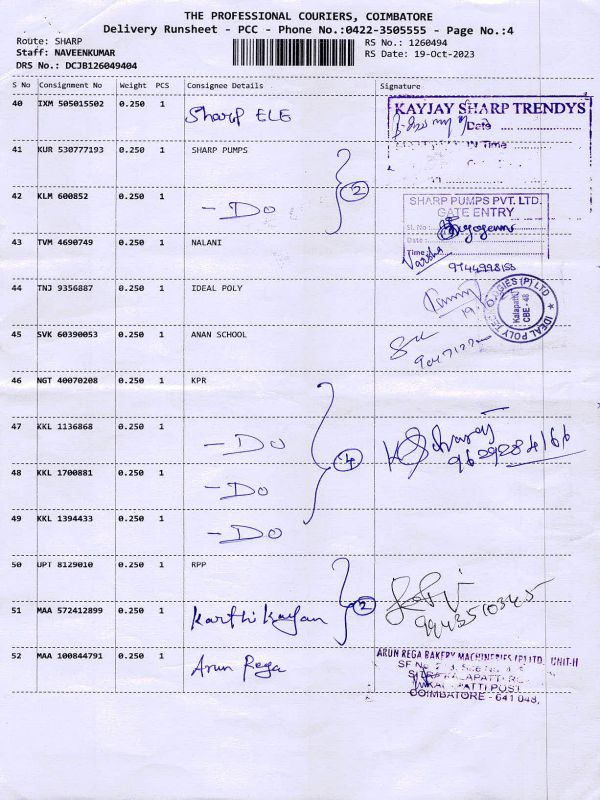 THE PROFESSIONAL COURIERS, COIMBATORE
Delivery Runsheet - PCC - Phone No.:0422-3505555 - Page No.:4
Route: SHARP
RS No.: 1260494
Staff: NAVEENKUMAR
RS Date: 19-Oct-2023
DRS No.: DCJB126049404
S No Consignment No Weight PCS Consignee Details Signature
40 IXM 505015502 0.250 1 Sharp ELE
KAYJAY SHARP TRENDYS
Date
In Time
41 KUR 530777193 0.250 1 SHARP PUMPS
2
42 KLM 600852 0.250 1 - Do
SHARP PUMPS PVT. LTD.
GATE ENTRY
Sl. No
Date
Time
43 TVM 4690749 0.250 1 NALANI
Varsha
9744998158
44 TNJ 9356887 0.250 1 IDEAL POLY
IDEAL POLY TECHNOLOGIES (P) LTD
Kalapatti
CBE - 48
45 SVK 60390053 0.250 1 ANAN SCHOOL
46 NGT 40070208 0.250 1 KPR
47 KKL 1136868 0.250 1 - Do
4
9629284166
48 KKL 1700881 0.250 1 - Do
49 KKL 1394433 0.250 1 - Do
50 UPT 8129010 0.250 1 RPP
2
9943510345
51 MAA 572412899 0.250 1 Karthikayan
52 MAA 100844791 0.250 1 Arun Rega
ARUN REGA BAKERY MACHINERIES (P) LTD., UNIT-II
SF No
PATTI POST
COIMBATORE - 641 048.